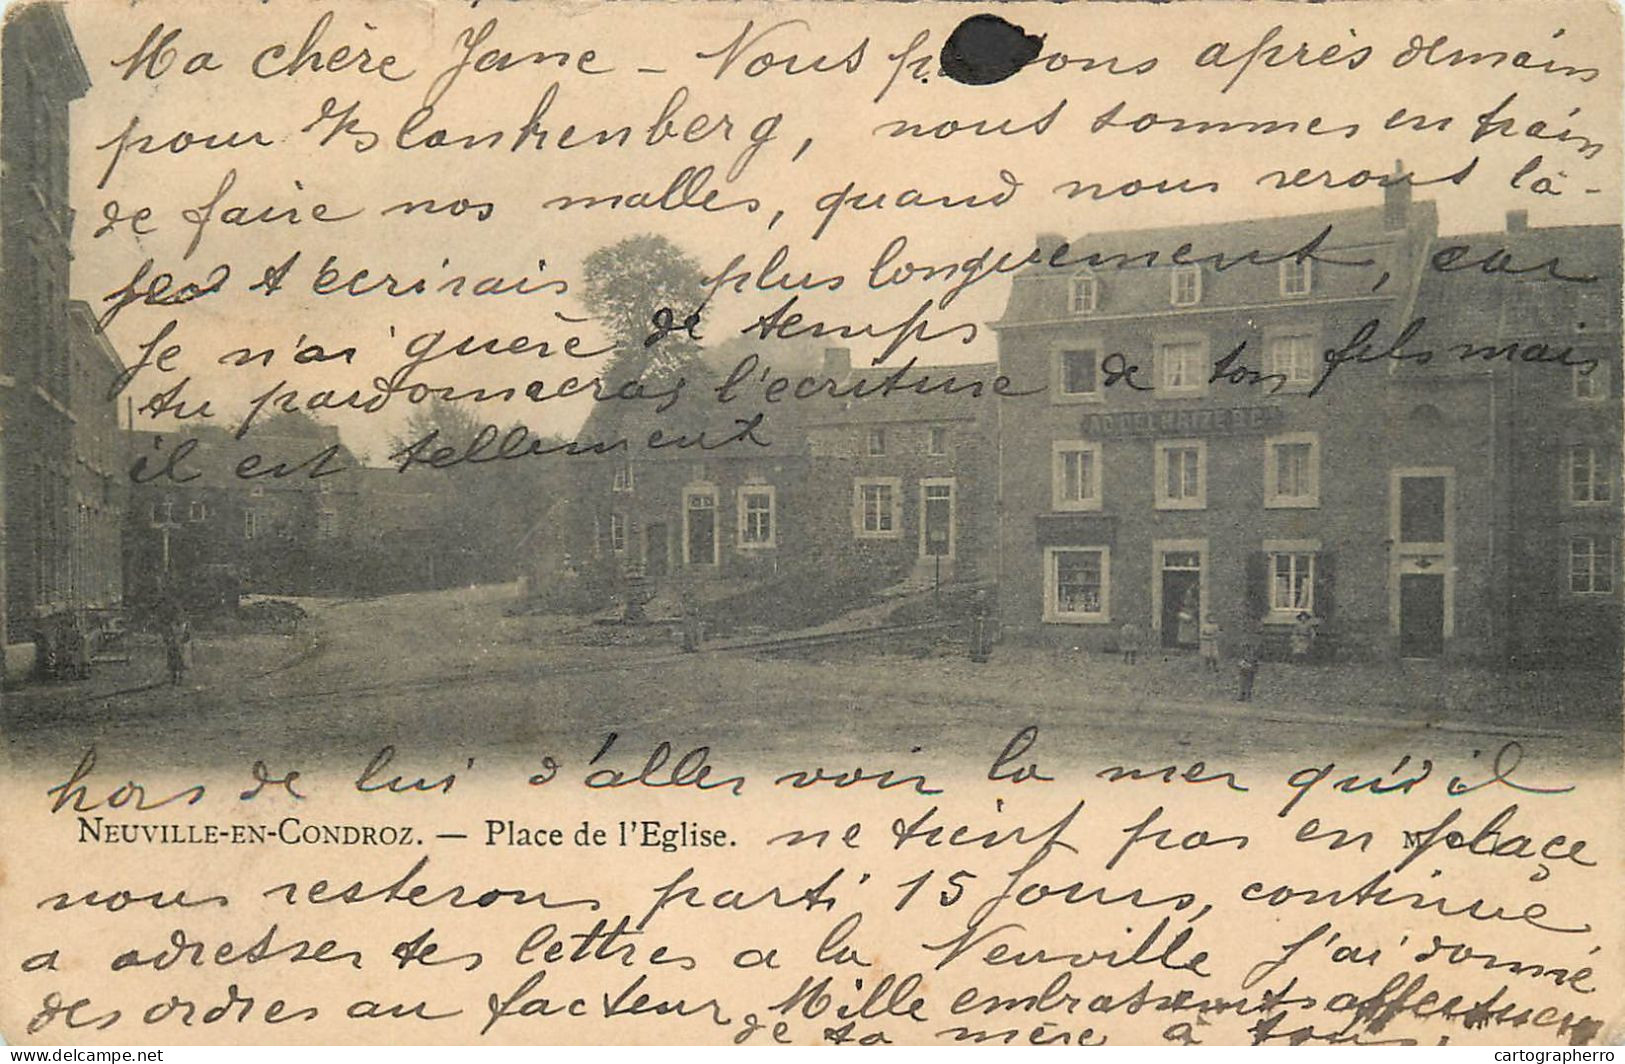 Ma chère Jane - Nous partons après demain
pour Blankenberg, nous sommes en train
de faire nos malles, quand nous serons là-
je t'écrirais plus longuement, car
je n'ai guère de temps
tu pardonneras l'écriture de ton fils mais
AD. DELHAIZE & Cie
il est tellement
hors de lui d'aller voir la mer qu'il
NEUVILLE-EN-CONDROZ. — Place de l'Eglise.
ne tient pas en plaçe
nous resterons parti 15 jours, continue
a adresser tes lettres a la Neuville j'ai donné
des ordres au facteur Mille embrassements affectueux
de ta mère à tous.